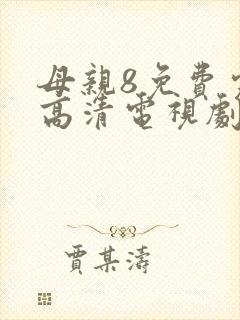 母親8免費
高清電視劇
賈某濤